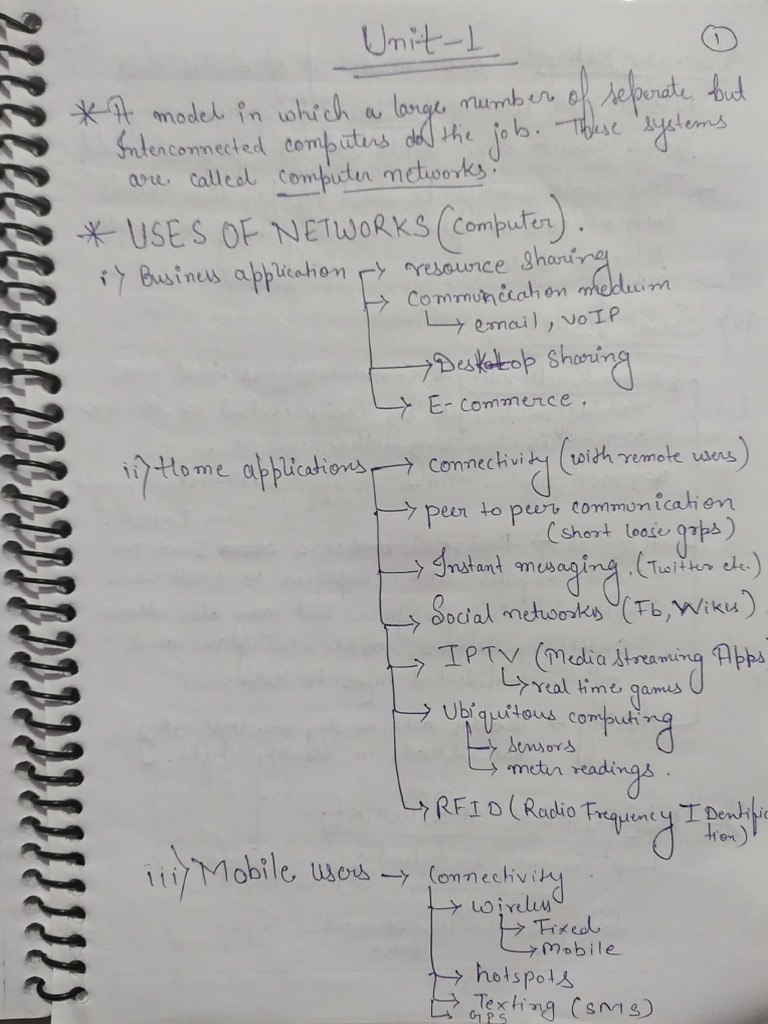 Unit-1
1
* A model in which a large number of seperate but
Interconnected computers do the job. These systems
are called computer networks.
* USES OF NETWORKS (Computer).
i) Business application → resource sharing
→ Communication meduim
→ email, VOIP
→ Desktop sharing
→ E-commerce.
ii) Home applications → connectivity (with remote users)
→ peer to peer communication
(short loose grps)
→ Instant messaging. (Twitter etc.)
→ Social networks (Fb, Wikis)
→ IPTV (Media streaming Apps
→ real time games
→ Ubiquitous computing
→ sensors
→ meter readings.
→ RFID (Radio Frequency IDentifica
tion)
iii) Mobile users → Connectivity
→ Wireless
→ Fixed
→ Mobile
→ hotspots
→ Texting (SMS)
→ GPS